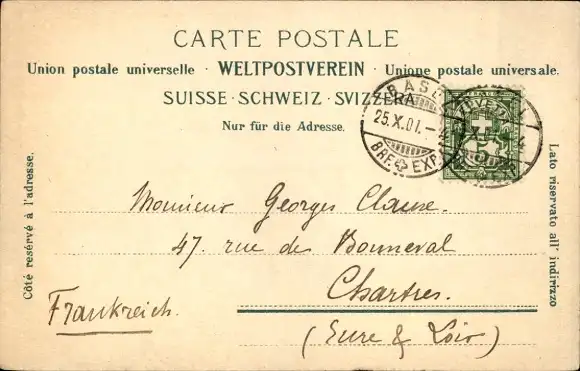 CARTE POSTALE
Union postale universelle · WELTPOSTVEREIN · Unione postale universale.
SUISSE · SCHWEIZ · SVIZZERA
Nur für die Adresse.
Côté resérvé à l'adresse.
Lato riservato all' indirizzo
BASEL
25.X.01.
BRF. EXP.
5
Monsieur Georges Clause.
47. rue de Bonneval
Chartres.
Frankreich.
(Eure & Loir)